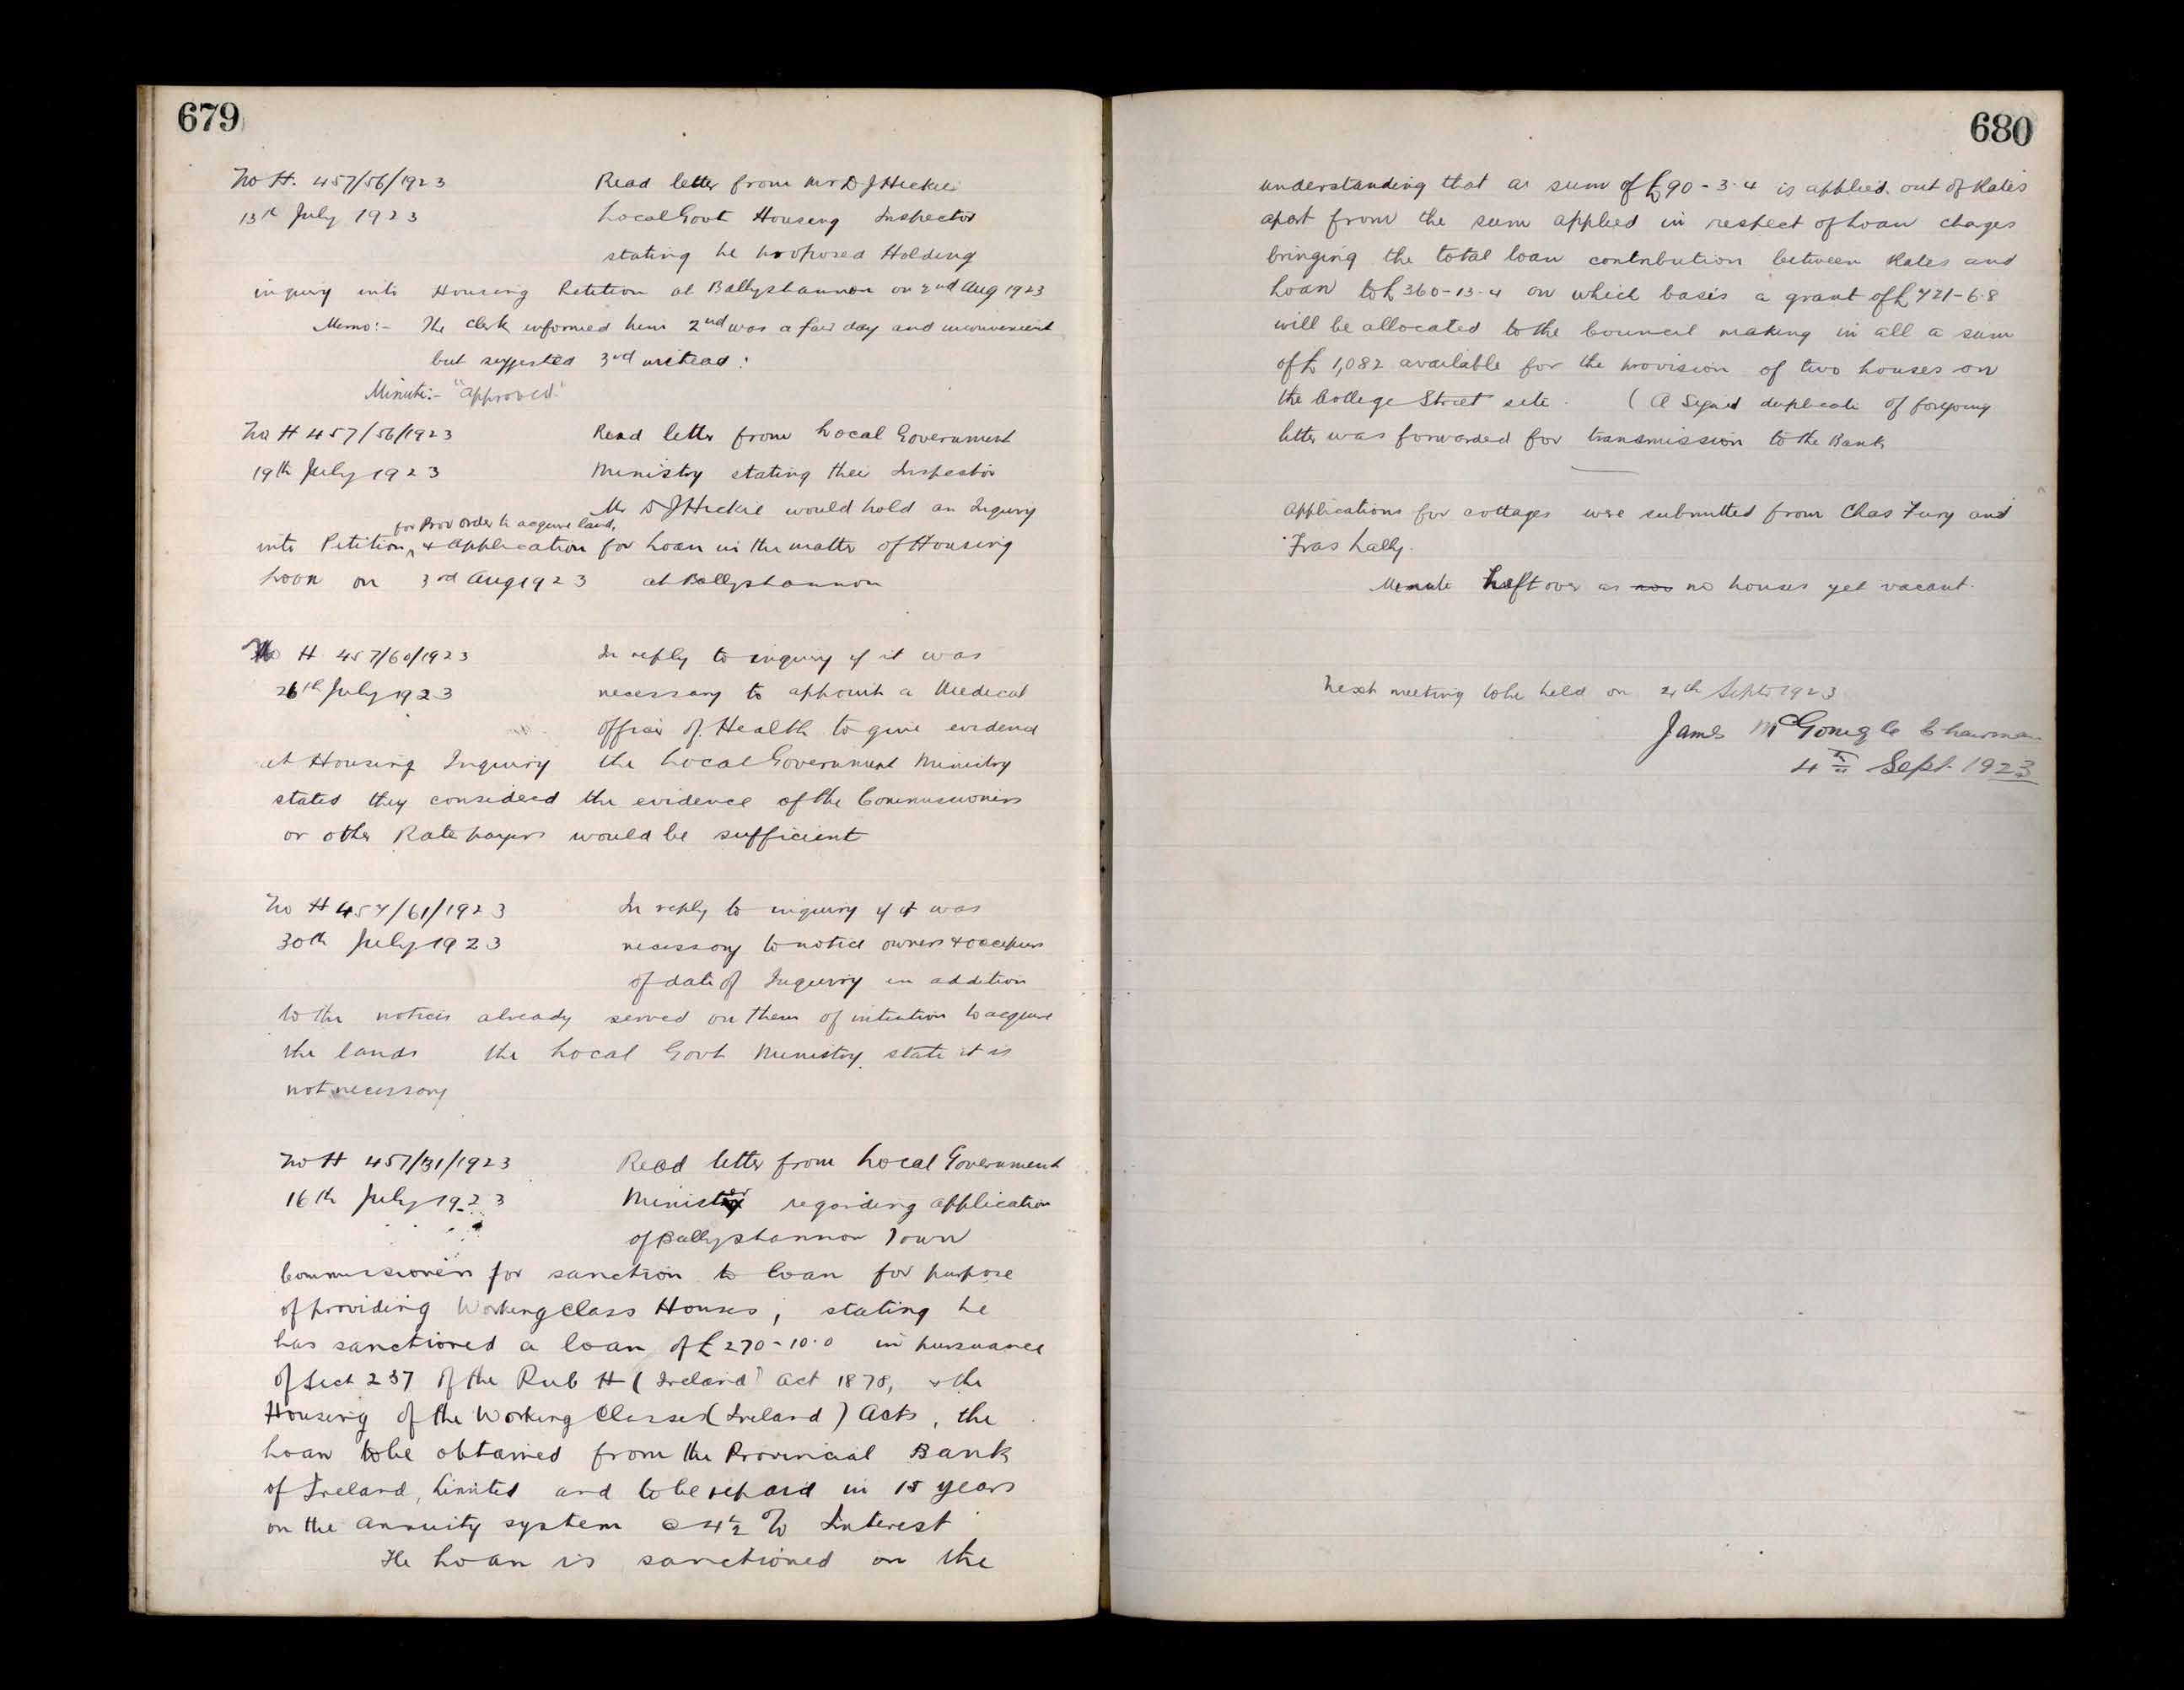 679
No H. 457/56/1923 Read letter from Mr D J Hickie
13th July 1923 Local Govt Housing Inspector
stating he proposed Holding
inquiry into Housing Petition at Ballyshannon on 2nd Aug 1923
Memo:- The Clerk informed him 2nd was a fair day and inconvenient
but suggested 3rd instead:
Minute:- "approved"
No H 457/56/1923 Read letter from Local Government
19th July 1923 Ministry stating their Inspector
Mr D J Hickie would hold an Inquiry
for Prov Order to acquire land,
into Petition ^ & application for Loan in the matter of Housing
Loan on 3rd Aug 1923 at Ballyshannon
No H 457/60/1923 In reply to inquiry if it was
26th July 1923 necessary to appoint a Medical
Officer of Health to give evidence
at Housing Inquiry the Local Government Ministry
stated they considered the evidence of the Commissioners
or other Rate payers would be sufficient
No H 457/61/1923 In reply to inquiry if it was
30th July 1923 necessary to notice owners & occupiers
of date of Inquiry in addition
to the notices already served on them of intention to acquire
the lands the Local Govt Ministry state it is
not necessary
No H 457/31/1923 Read letter from Local Government
16th July 1923 Minister regarding application
of Ballyshannon Town
Commissioners for sanction to loan for purpose
of providing Working Class Houses, stating he
has sanctioned a loan of £270-10.0 in pursuance
of Sect 237 of the Pub H (Ireland) Act 1878, & the
Housing of the Working Classes (Ireland) Acts, the
Loan to be obtained from the Provincial Bank
of Ireland, Limited and to be repaid in 15 years
on the annuity system @ 4½ % Interest
The Loan is sanctioned on the
680
understanding that a sum of £90-3-4 is applied out of Rates
apart from the sum applied in respect of Loan charges
bringing the total loan contribution between Rates and
Loan to £360-13-4 on which basis a grant of £721-6-8
will be allocated to the Council making in all a sum
of £1,082 available for the provision of two houses on
the College Street site. (A Signed duplicate of foregoing
letter was forwarded for transmission to the Bank
Applications for cottages were submitted from Chas Fury and
Fras Lally.
Minute Left over as no no houses yet vacant.
Next meeting to be held on 4th Sept 1923
James McGonigle Chairman
4th Sept. 1923